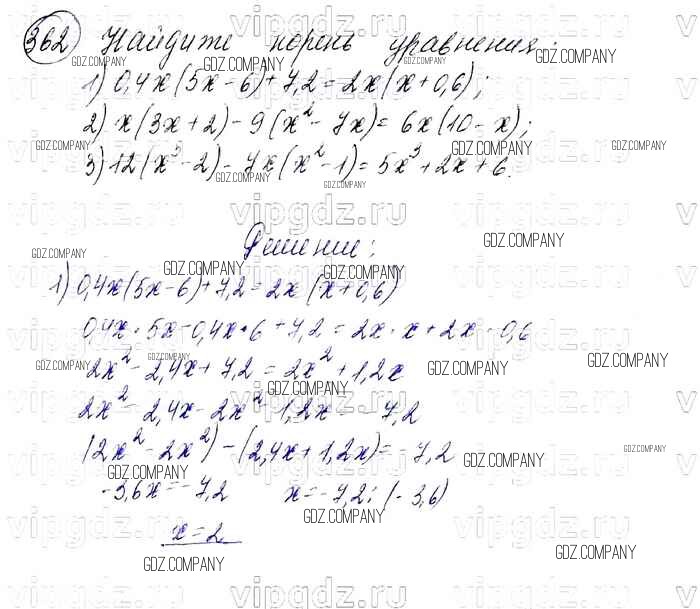 362 Найдите корень уравнения:
1) 0,4x(5x-6)+7,2=2x(x+0,6);
2) x(3x+2)-9(x²-7x)=6x(10-x);
3) 12(x³-2)-7x(x²-1)=5x³+2x+6.
Решение:
1) 0,4x(5x-6)+7,2=2x(x+0,6)
0,4x·5x-0,4x·6+7,2=2x·x+2x·0,6
2x²-2,4x+7,2=2x²+1,2x
2x²-2,4x-2x²-1,2x=-7,2
(2x²-2x²)-(2,4x+1,2x)=-7,2
-3,6x=-7,2 x=-7,2:(-3,6)
x=2
vipgdz.ru
GDZ.COMPANY